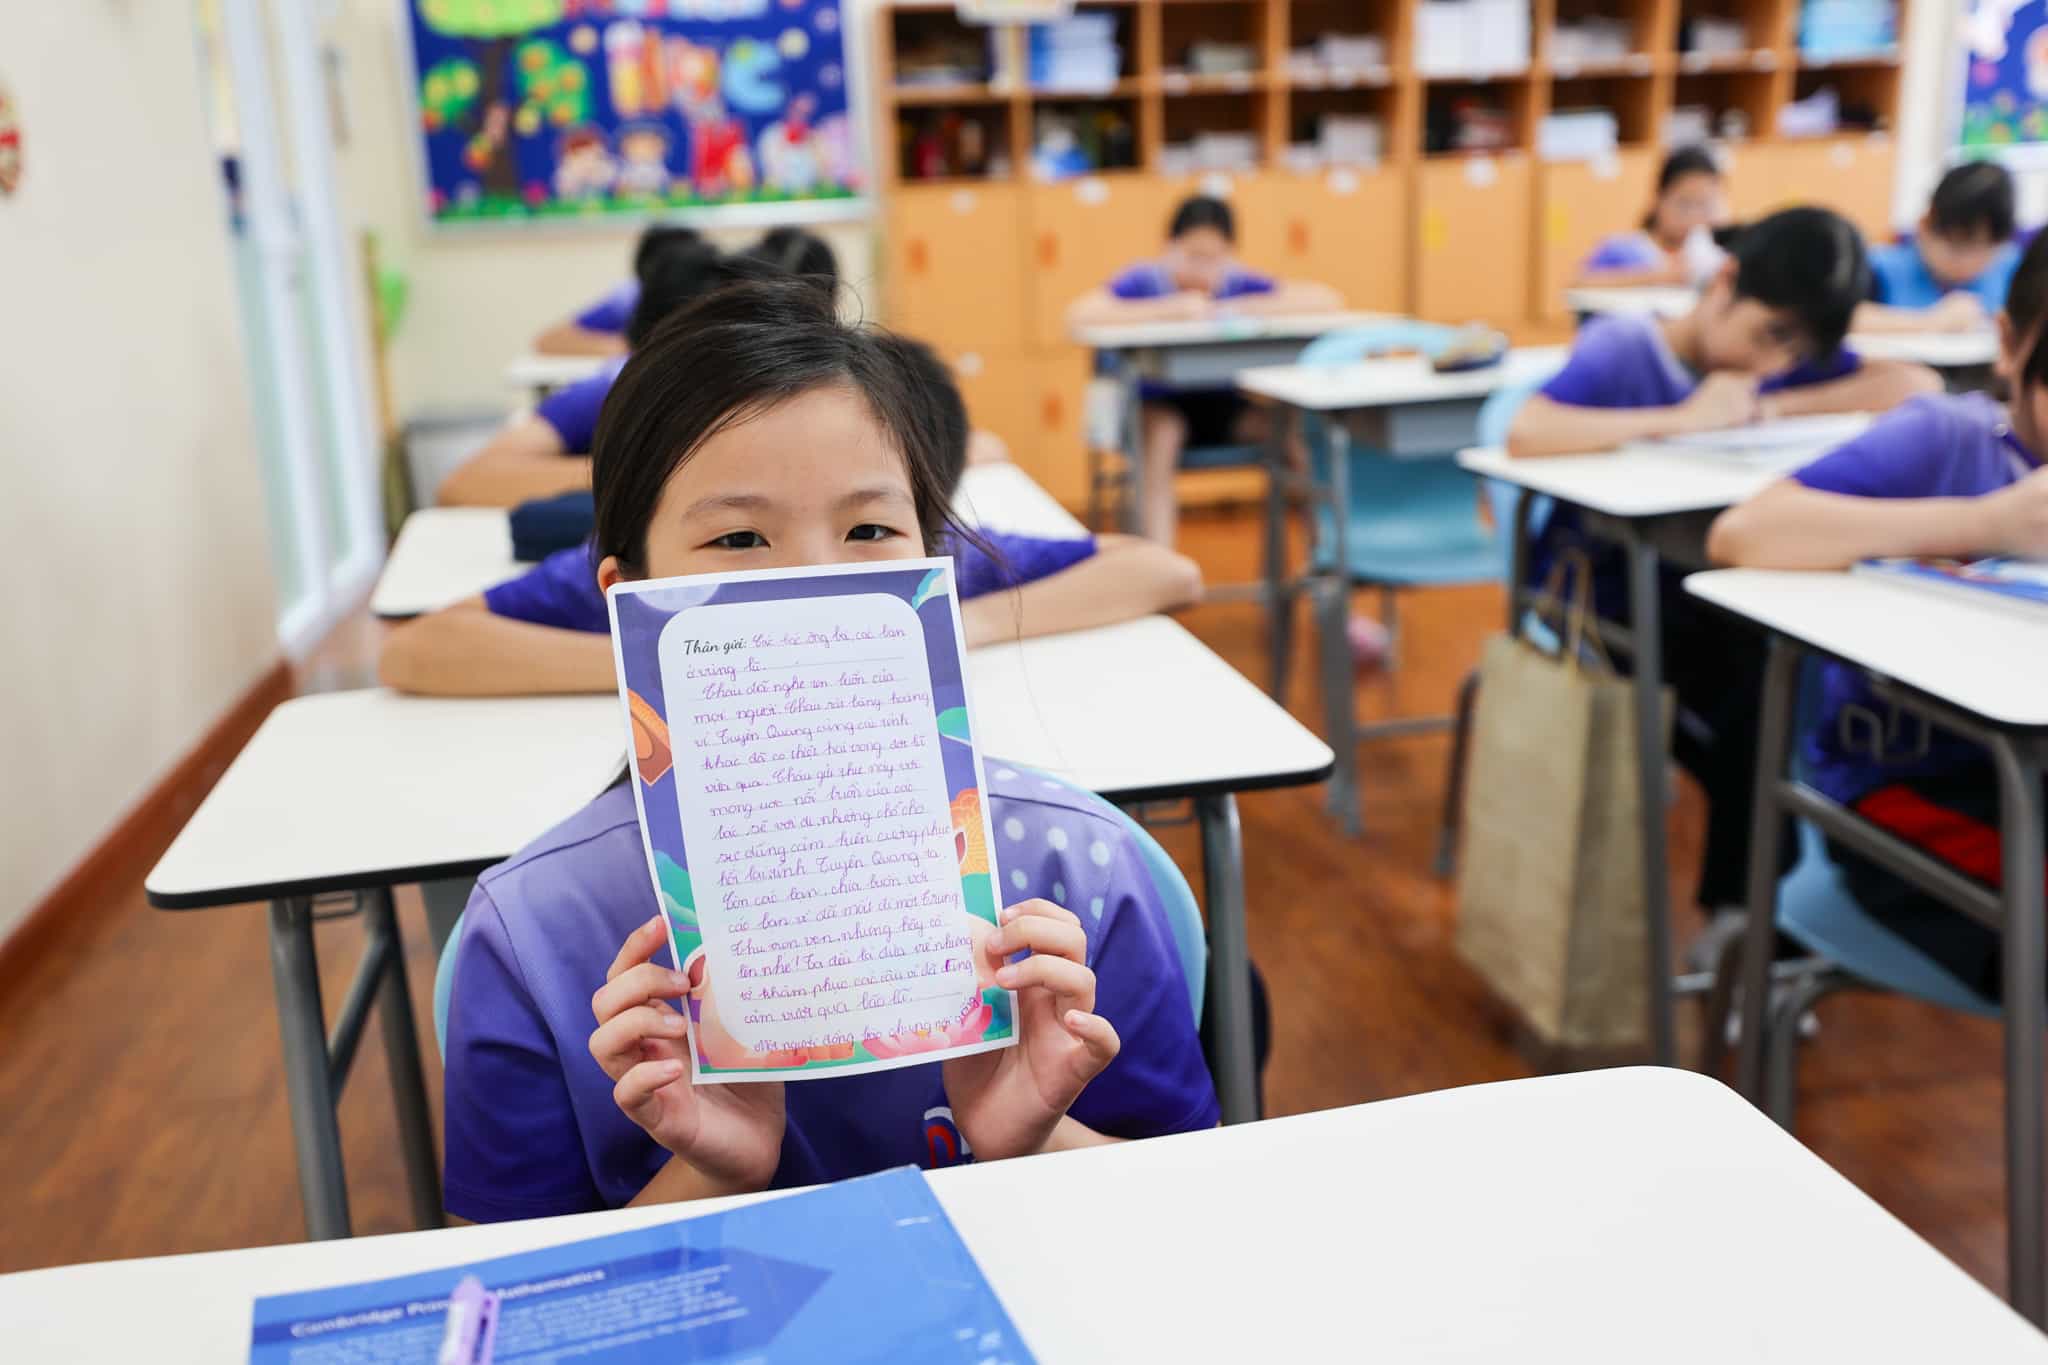 Thân gửi: Các bác, ông bà, các bạn
ở vùng lũ.
Cháu đã nghe tin buồn của
mọi người. Cháu rất bàng hoàng
vì Tuyên Quang cùng các tỉnh
khác đã có thiệt hại trong đợt lũ
vừa qua. Cháu gửi thư này với
mong ước nỗi buồn của các
bác sẽ vơi đi, nhường chỗ cho
sự dũng cảm, kiên cường phục
hồi lại tỉnh Tuyên Quang ta.
Còn các bạn, chia buồn với
các bạn vì đã mất đi một Trung
Thu trọn vẹn, nhưng hãy cố
lên nhé! Ta đều là đứa trẻ nhưng
tớ khâm phục các cậu vì đã dũng
cảm vượt qua bão lũ.
Một người đồng bào chung nòi giống
Cambridge Primary Mathematics